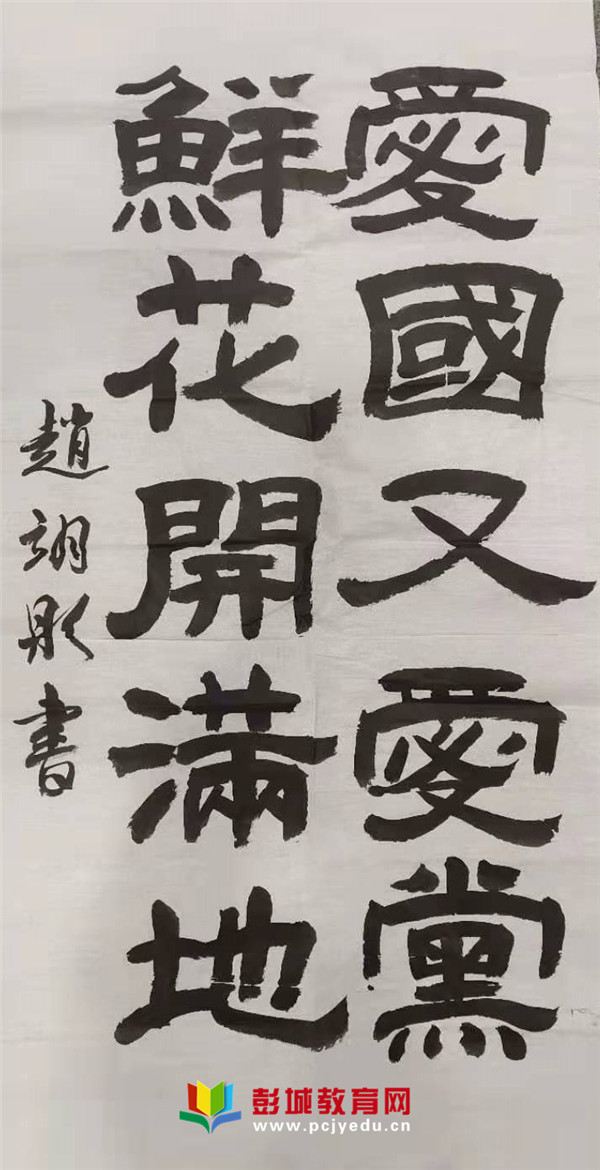 愛國又愛黨
鮮花開滿地
趙翊彤書
彭城教育网
www.pcjyedu.cn